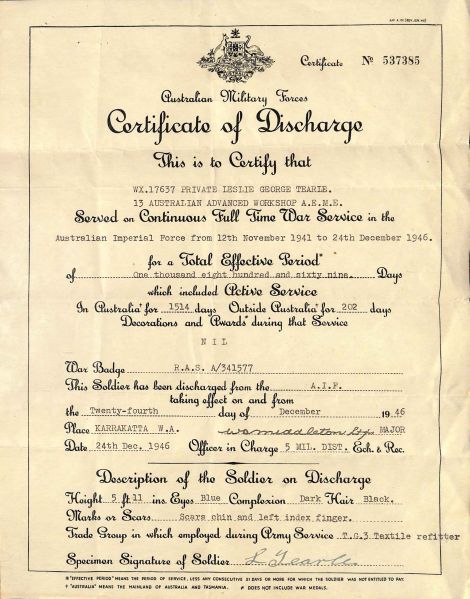 Certificate Nº 537385
Australian Military Forces
Certificate of Discharge
This is to Certify that
WX.17637 PRIVATE LESLIE GEORGE TEARLE.
13 AUSTRALIAN ADVANCED WORKSHOP A.E.M.E.
Served on Continuous Full Time War Service in the
Australian Imperial Force from 12th November 1941 to 24th December 1946.
for a Total Effective Period*
of One thousand eight hundred and sixty nine. Days
which included Active Service
In Australia† for 1514 days Outside Australia† for 202 days
Decorations and Awards≠ during that Service
NIL
War Badge R.A.S. A/341577
This Soldier has been discharged from the A.I.F.
taking effect on and from
the Twenty-fourth day of December 1946
Place KARRAKATTA W.A. MAJOR
Date 24th Dec, 1946 Officer in Charge 5 MIL. DIST. Ech. & Rec.
Description of the Soldier on Discharge
Height 5 ft 11 ins. Eyes Blue Complexion Dark Hair Black.
Marks or Scars Scars chin and left index finger.
Trade Group in which employed during Army Service T.G.3 Textile refitter
Specimen Signature of Soldier L Tearle
* "EFFECTIVE PERIOD" MEANS THE PERIOD OF SERVICE, LESS ANY CONSECUTIVE 21 DAYS OR MORE FOR WHICH THE SOLDIER WAS NOT ENTITLED TO PAY.
† "AUSTRALIA" MEANS THE MAINLAND OF AUSTRALIA AND TASMANIA. ≠ DOES NOT INCLUDE WAR MEDALS.